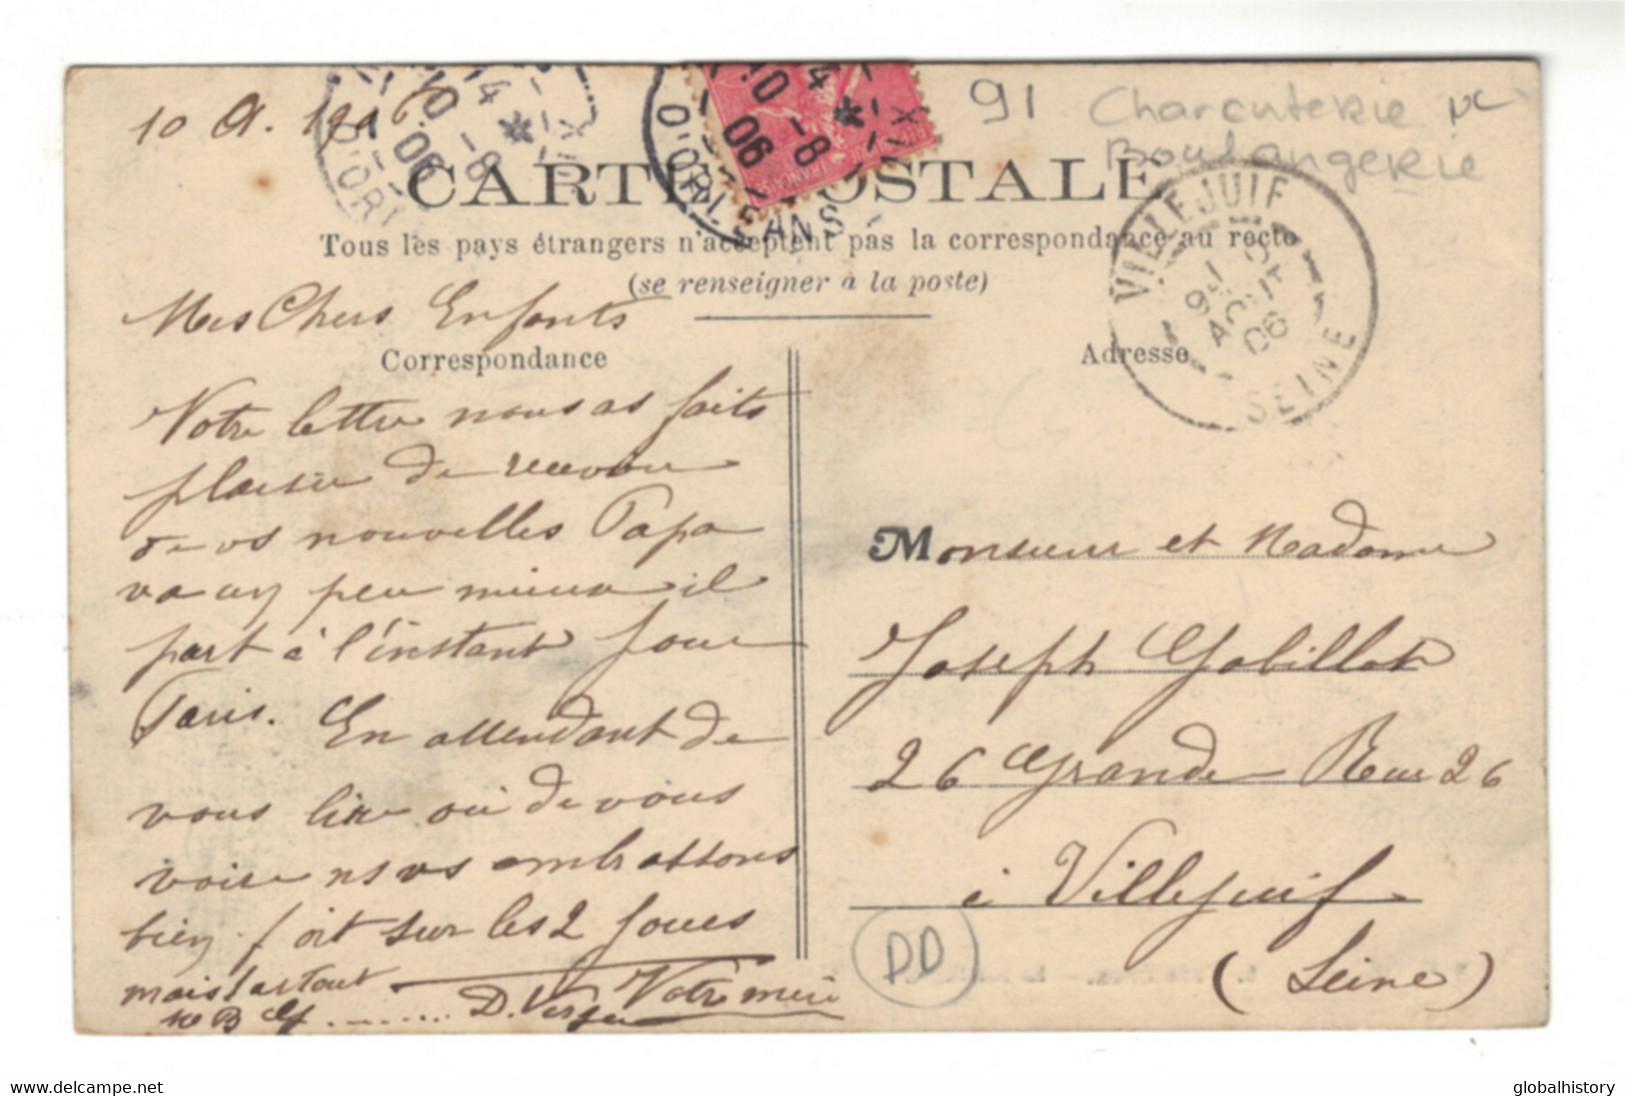 10 A. 1906
91 Charcuterie
Boulangerie
CARTE POSTALE
Tous les pays étrangers n'acceptent pas la correspondance au recto
(se renseigner à la poste)
D'ORLEANS
10 -8
06
VILLEJUIF
AOUT
06
SEINE
Mes Chers Enfants
Correspondance
Adresse
Votre lettre nous as faits
plaisir de recevoir
de vos nouvelles Papa
va un peu mieux il
part à l'instant pour
Paris. En attendant de
vous lire ou de vous
voire nous vous embrassons
bien fort sur les 2 joues
mais partout
Votre mère
D. Verger
Monsieur et Madame
Joseph Gobillot
26 Grande Rue 26
à Villejuif
(Seine)
DD
www.delcampe.net
globalhistory